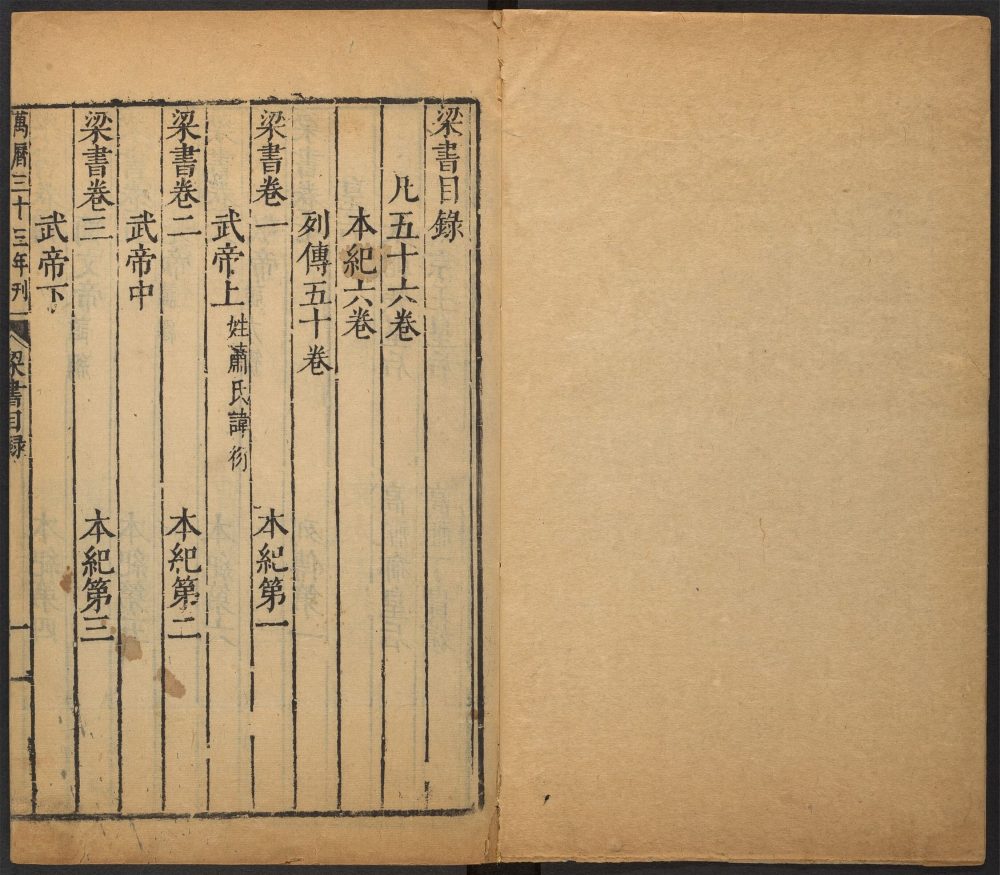 梁書目錄
凡五十六卷
本紀六卷
列傳五十卷
梁書卷一 本紀第一
武帝上 姓蕭氏諱衍
梁書卷二 本紀第二
武帝中
梁書卷三 本紀第三
武帝下
萬曆三十三年刊 梁書目録 一